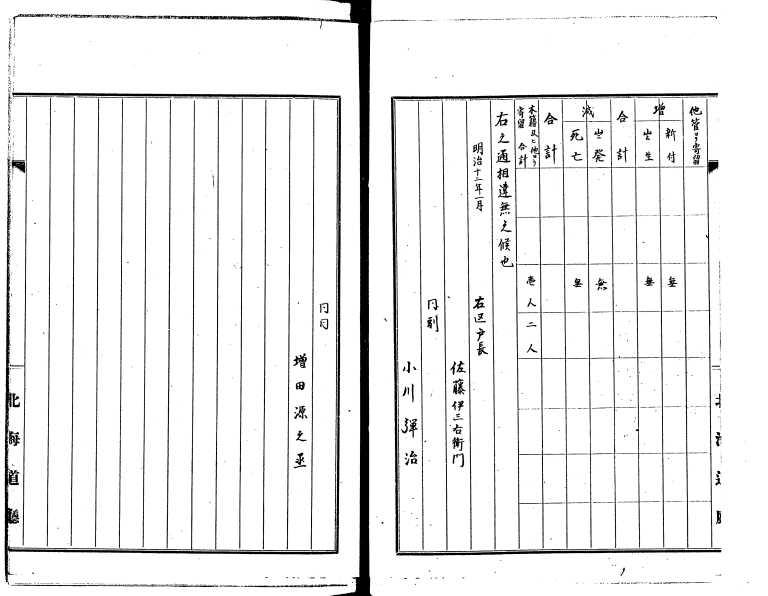 他管ヨリ寄留
増
新付
出生
合計
減
出発
死亡
合計
本籍及ヒ他ヨリ
寄留 合計
無
無
無
無
壱人二人
右之通相違無之候也
明治十二年一月
右区戸長
佐藤伊三右衛門
同副
小川弾治
同同
増田源之丞
北海道廳
北海道廳